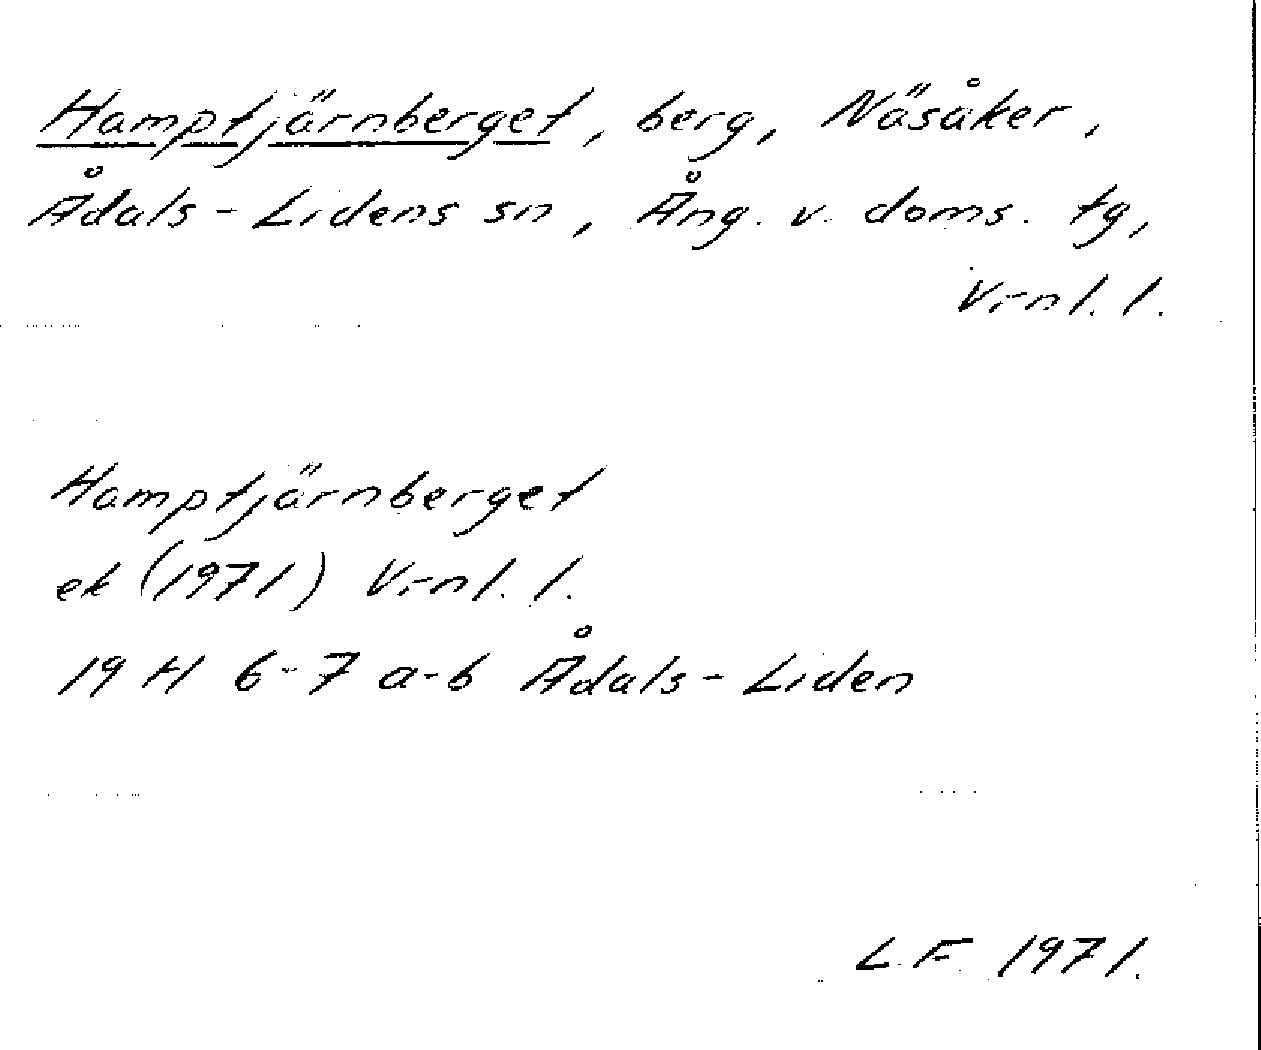 Hamptjärnberget, berg, Näsåker,
Ådals-Lidens sn, Ång. v. doms. tg,
Vrnl. l.
Hamptjärnberget
ek (1971) Vrnl. l.
19 H 6-7 a-b Ådals-Liden
L.F. 1971.